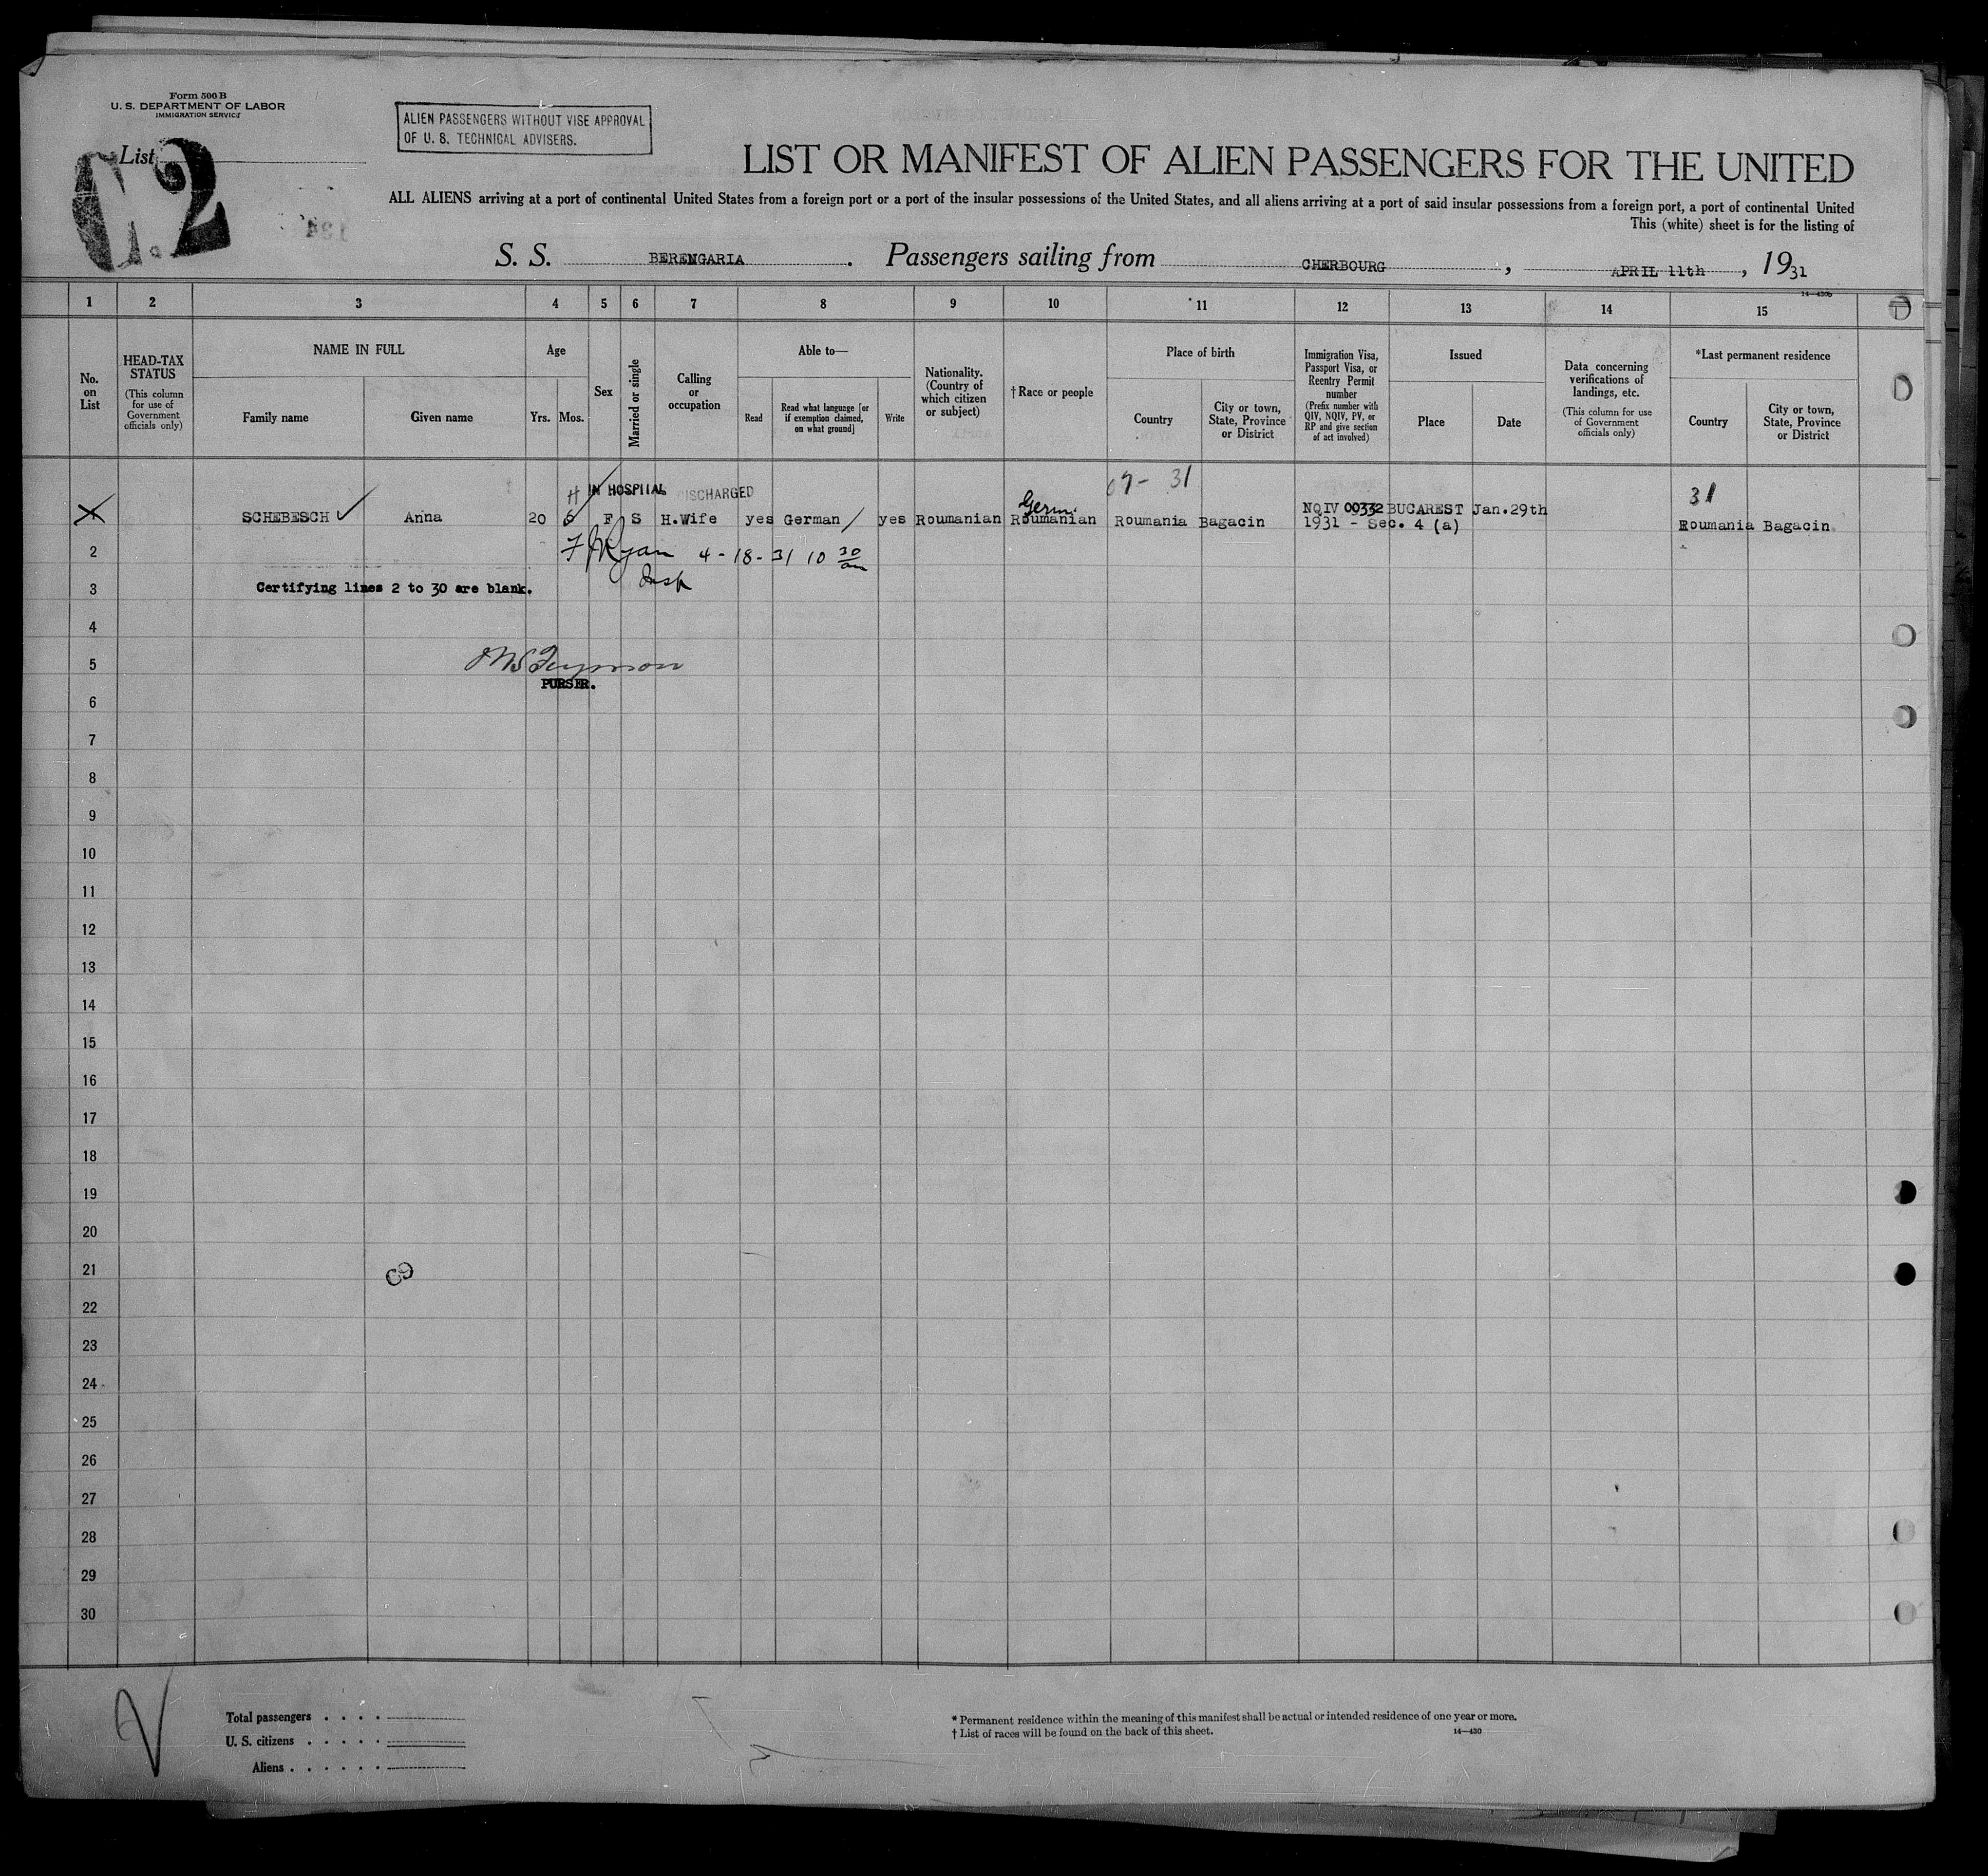 Form 500 B
U. S. DEPARTMENT OF LABOR
IMMIGRATION SERVICE
List
2
ALIEN PASSENGERS WITHOUT VISE APPROVAL
OF U. S. TECHNICAL ADVISERS.
LIST OR MANIFEST OF ALIEN PASSENGERS FOR THE UNITED
ALL ALIENS arriving at a port of continental United States from a foreign port or a port of the insular possessions of the United States, and all aliens arriving at a port of said insular possessions from a foreign port, a port of continental United
This (white) sheet is for the listing of
S. S. BERENGARIA. Passengers sailing from CHERBOURG, APRIL 11th, 1931
14—430b
1 2 3 4 5 6 7 8 9 10 11 12 13 14 15
No. on List
HEAD-TAX STATUS
(This column for use of Government officials only)
NAME IN FULL
Family name
Given name
Age
Yrs.
Mos.
Sex
Married or single
Calling or occupation
Able to—
Read
Read what language [or if exemption claimed, on what ground]
Write
Nationality. (Country of which citizen or subject)
†Race or people
Place of birth
Country
City or town, State, Province or District
Immigration Visa, Passport Visa, or Reentry Permit number
(Prefix number with QIV, NQIV, PV, or RP and give section of act involved)
Issued
Place
Date
Data concerning verifications of landings, etc.
(This column for use of Government officials only)
*Last permanent residence
Country
City or town, State, Province or District
H IN HOSPITAL DISCHARGED
Germ.
31
31
SCHEBESCH Anna 20 6 F S H.Wife yes German yes Roumanian Roumanian Roumania Bagacin NQIV 00332 BUCAREST Jan.29th Roumania Bagacin
1931 - Sec. 4 (a)
2
F J Ryan 4-18-31 10 30 am
Insp
3 Certifying lines 2 to 30 are blank.
4
5
PURSER.
6
7
8
9
10
11
12
13
14
15
16
17
18
19
20
21
22
23
24
25
26
27
28
29
30
Total passengers . . . .
U. S. citizens . . . . .
Aliens . . . . . .
* Permanent residence within the meaning of this manifest shall be actual or intended residence of one year or more.
† List of races will be found on the back of this sheet.
14—430